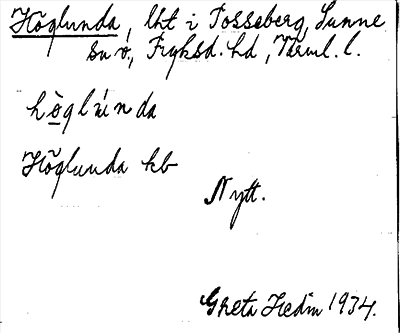 Höglunda, lht i Posseberg, Sunne
sn o., Fryksd. hd, Värml. l.
hò̱glúnda
Höglunda kb
Nytt.
Greta Hedin 1934.